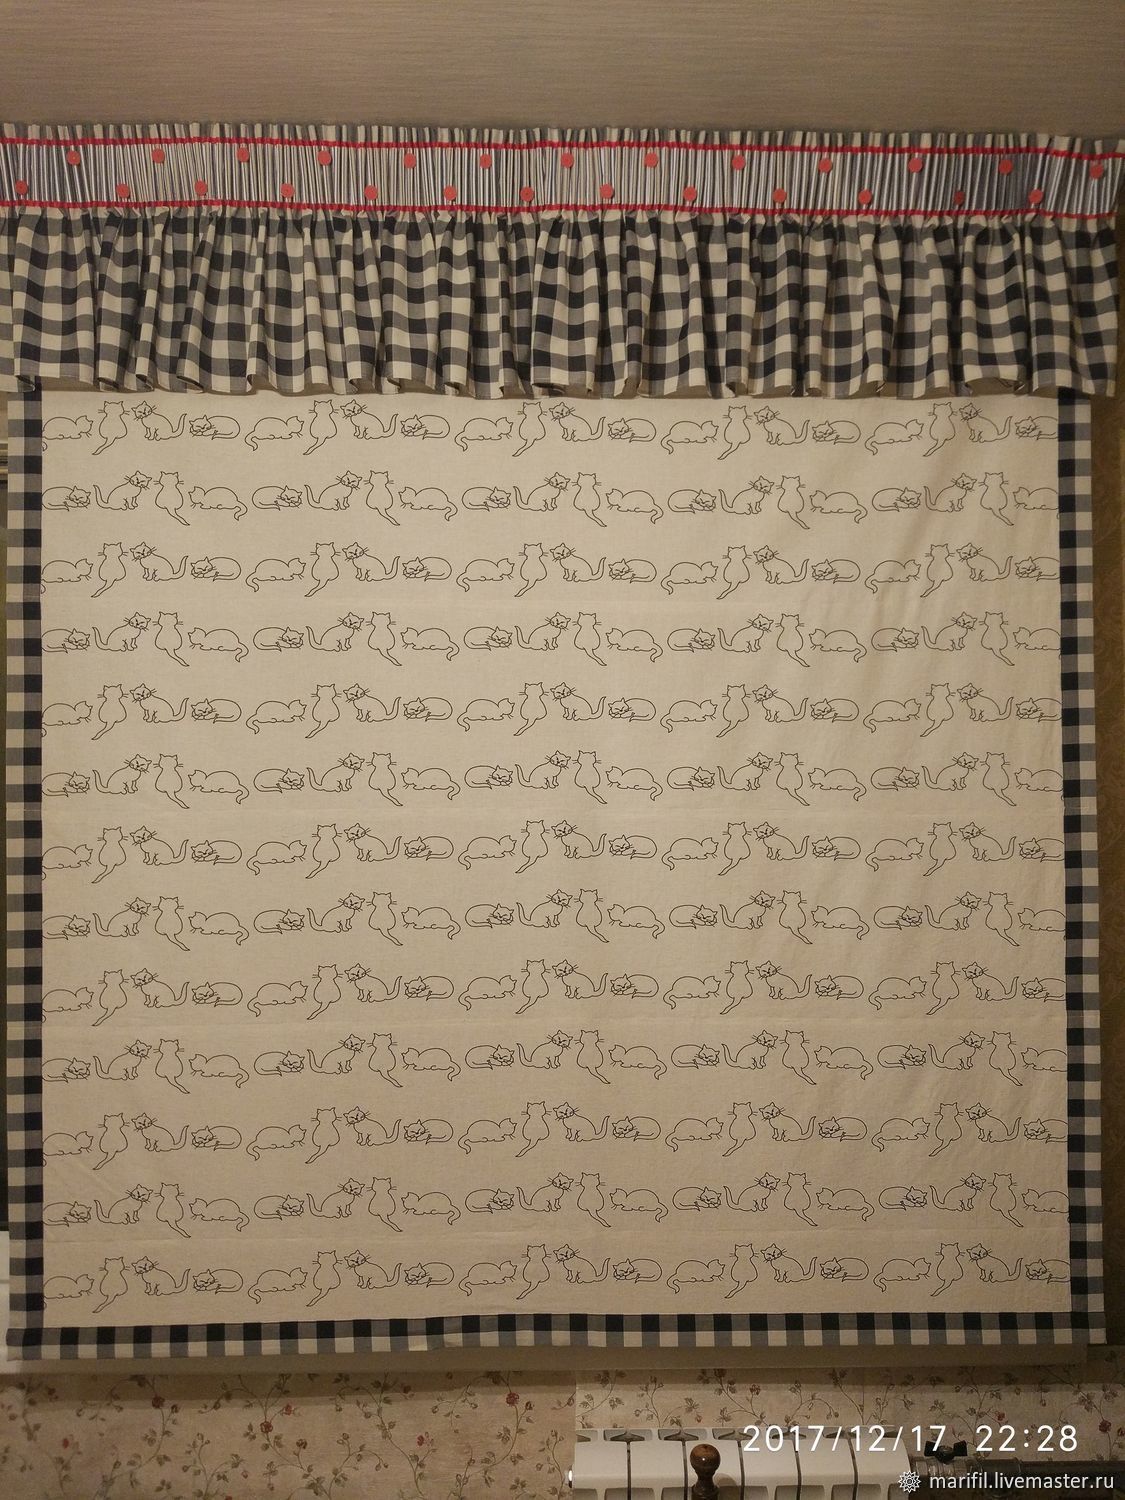 2017/12/17 22:28
marifil.livemaster.ru